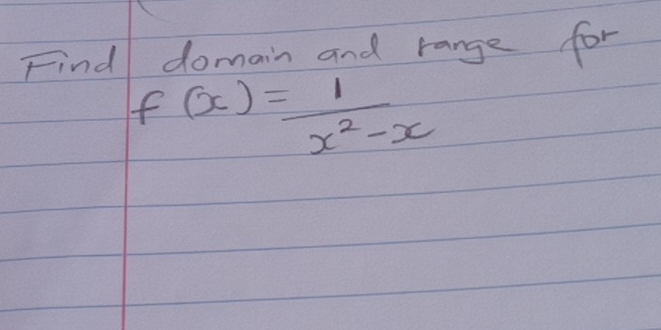 Find domain and range for
f(x) = 1/(x² - x)